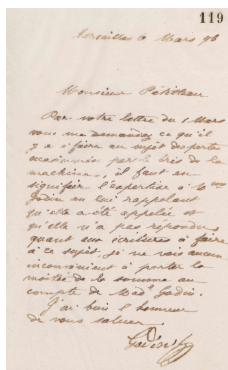 119
Versailles 6 Mars 96
Monsieur Pétiteau
Par votre lettre du 1 Mars
vous me demandez ce qu'il
y a à faire au sujet des pertes
occasionnées par le bris de la
machine, il faut en
signifier l'expertise à la
Godin en lui rappelant
qu'elle a été appelée et
qu'elle n'a pas répondu,
quant aux écritures à faire
à ce sujet je ne vois aucun
inconvénient à porter la
moitié de la somme au
compte de Made Godin.
J'ai bien l'honneur
de vous saluer.